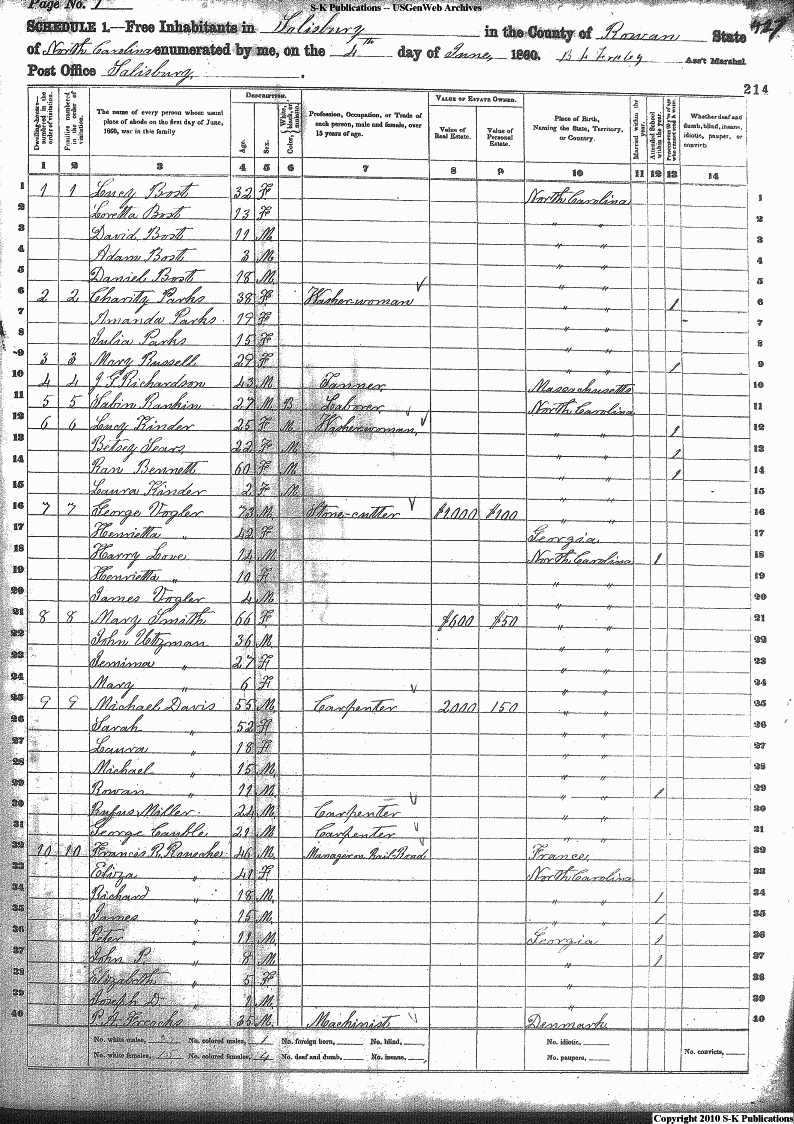 Page No. 1
S-K Publications -- USGenWeb Archives
SCHEDULE 1.—Free Inhabitants in Salisbury in the County of Rowan State
of North Carolina enumerated by me, on the 4th day of June, 1860. Ass't Marshal.
Post Office Salisbury.
214
Dwelling-houses— numbered in the order of visitation.
Families numbered in the order of visitation.
The name of every person whose usual place of abode on the first day of June, 1860, was in this family
DESCRIPTION.
Age.
Sex.
Color, White, black, or mulatto.
Profession, Occupation, or Trade of each person, male and female, over 15 years of age.
VALUE OF ESTATE OWNED.
Value of Real Estate.
Value of Personal Estate.
Place of Birth, Naming the State, Territory, or Country.
Married within the year.
Attended School within the year.
Whether deaf and dumb, blind, insane, idiotic, pauper, or convict.
1 2 3 4 5 6 7 8 9 10 11 12 13 14
1 1 1 Lucy Bost 32 F North Carolina 1
2 Loretta Bost 13 F " " 2
3 David Bost 11 M " " 3
4 Adam Bost 3 M " " 4
5 Daniel Bost 18 M " " 5
6 2 2 Charity Parks 38 F Washer-woman " " 1 6
7 Amanda Parks 19 F " " 7
8 Julia Parks 15 F " " 8
9 3 3 Mary Russell 29 F " " 1 9
10 4 4 J G Richardson 43 M Tanner Massachusetts 10
11 5 5 Rankin 27 M B Laborer North Carolina 11
12 6 6 Lucy Kinder 25 F M Washer-woman " " 1 12
13 Betsey Sears 22 F M " " 1 13
14 Ran Bennett 60 F M " " 1 14
15 Laura Kinder 2 F M " " 15
16 7 7 George Vogler 73 M Stone-cuttter $1000 $100 " " 16
17 Henrietta " 42 F Georgia 17
18 Harry Love 14 M North Carolina 1 18
19 Henrietta " 10 F " " 19
20 James Vogler 4 M " " 20
21 8 8 Mary Smith 66 F $600 $50 " " 21
22 John Utzman 36 M " " 22
23 Jemima " 27 F " " 23
24 Mary " 6 F " " 24
25 9 9 Michael Davis 55 M Carpenter 2000 150 " " 25
26 Sarah " 52 F " " 26
27 Laura " 18 F " " 27
28 Michael " 15 M " " 28
29 Rowan " 11 M " " 1 29
30 Rufus Miller 24 M Carpenter " " 30
31 George Cauble 21 M Carpenter " " 31
32 10 10 Francis R. Roueche 46 M Manager on Rail-Road France 32
33 Eliza " 41 F North Carolina 33
34 Richard " 18 M " " 1 34
35 James " 15 M " " 1 35
36 Peter " 11 M Georgia 1 36
37 John P. " 8 M " 1 37
38 Elizabeth " 5 F " 38
39 Joseph D. " 1 M " 39
40 35 M Machinist Denmark 40
No. white males, No. colored males, 1 No. foreign born, No. blind, No. idiotic,
No. white females, No. colored females, 4 No. deaf and dumb, No. insane, No. paupers, No. convicts,
Copyright 2010 S-K Publications